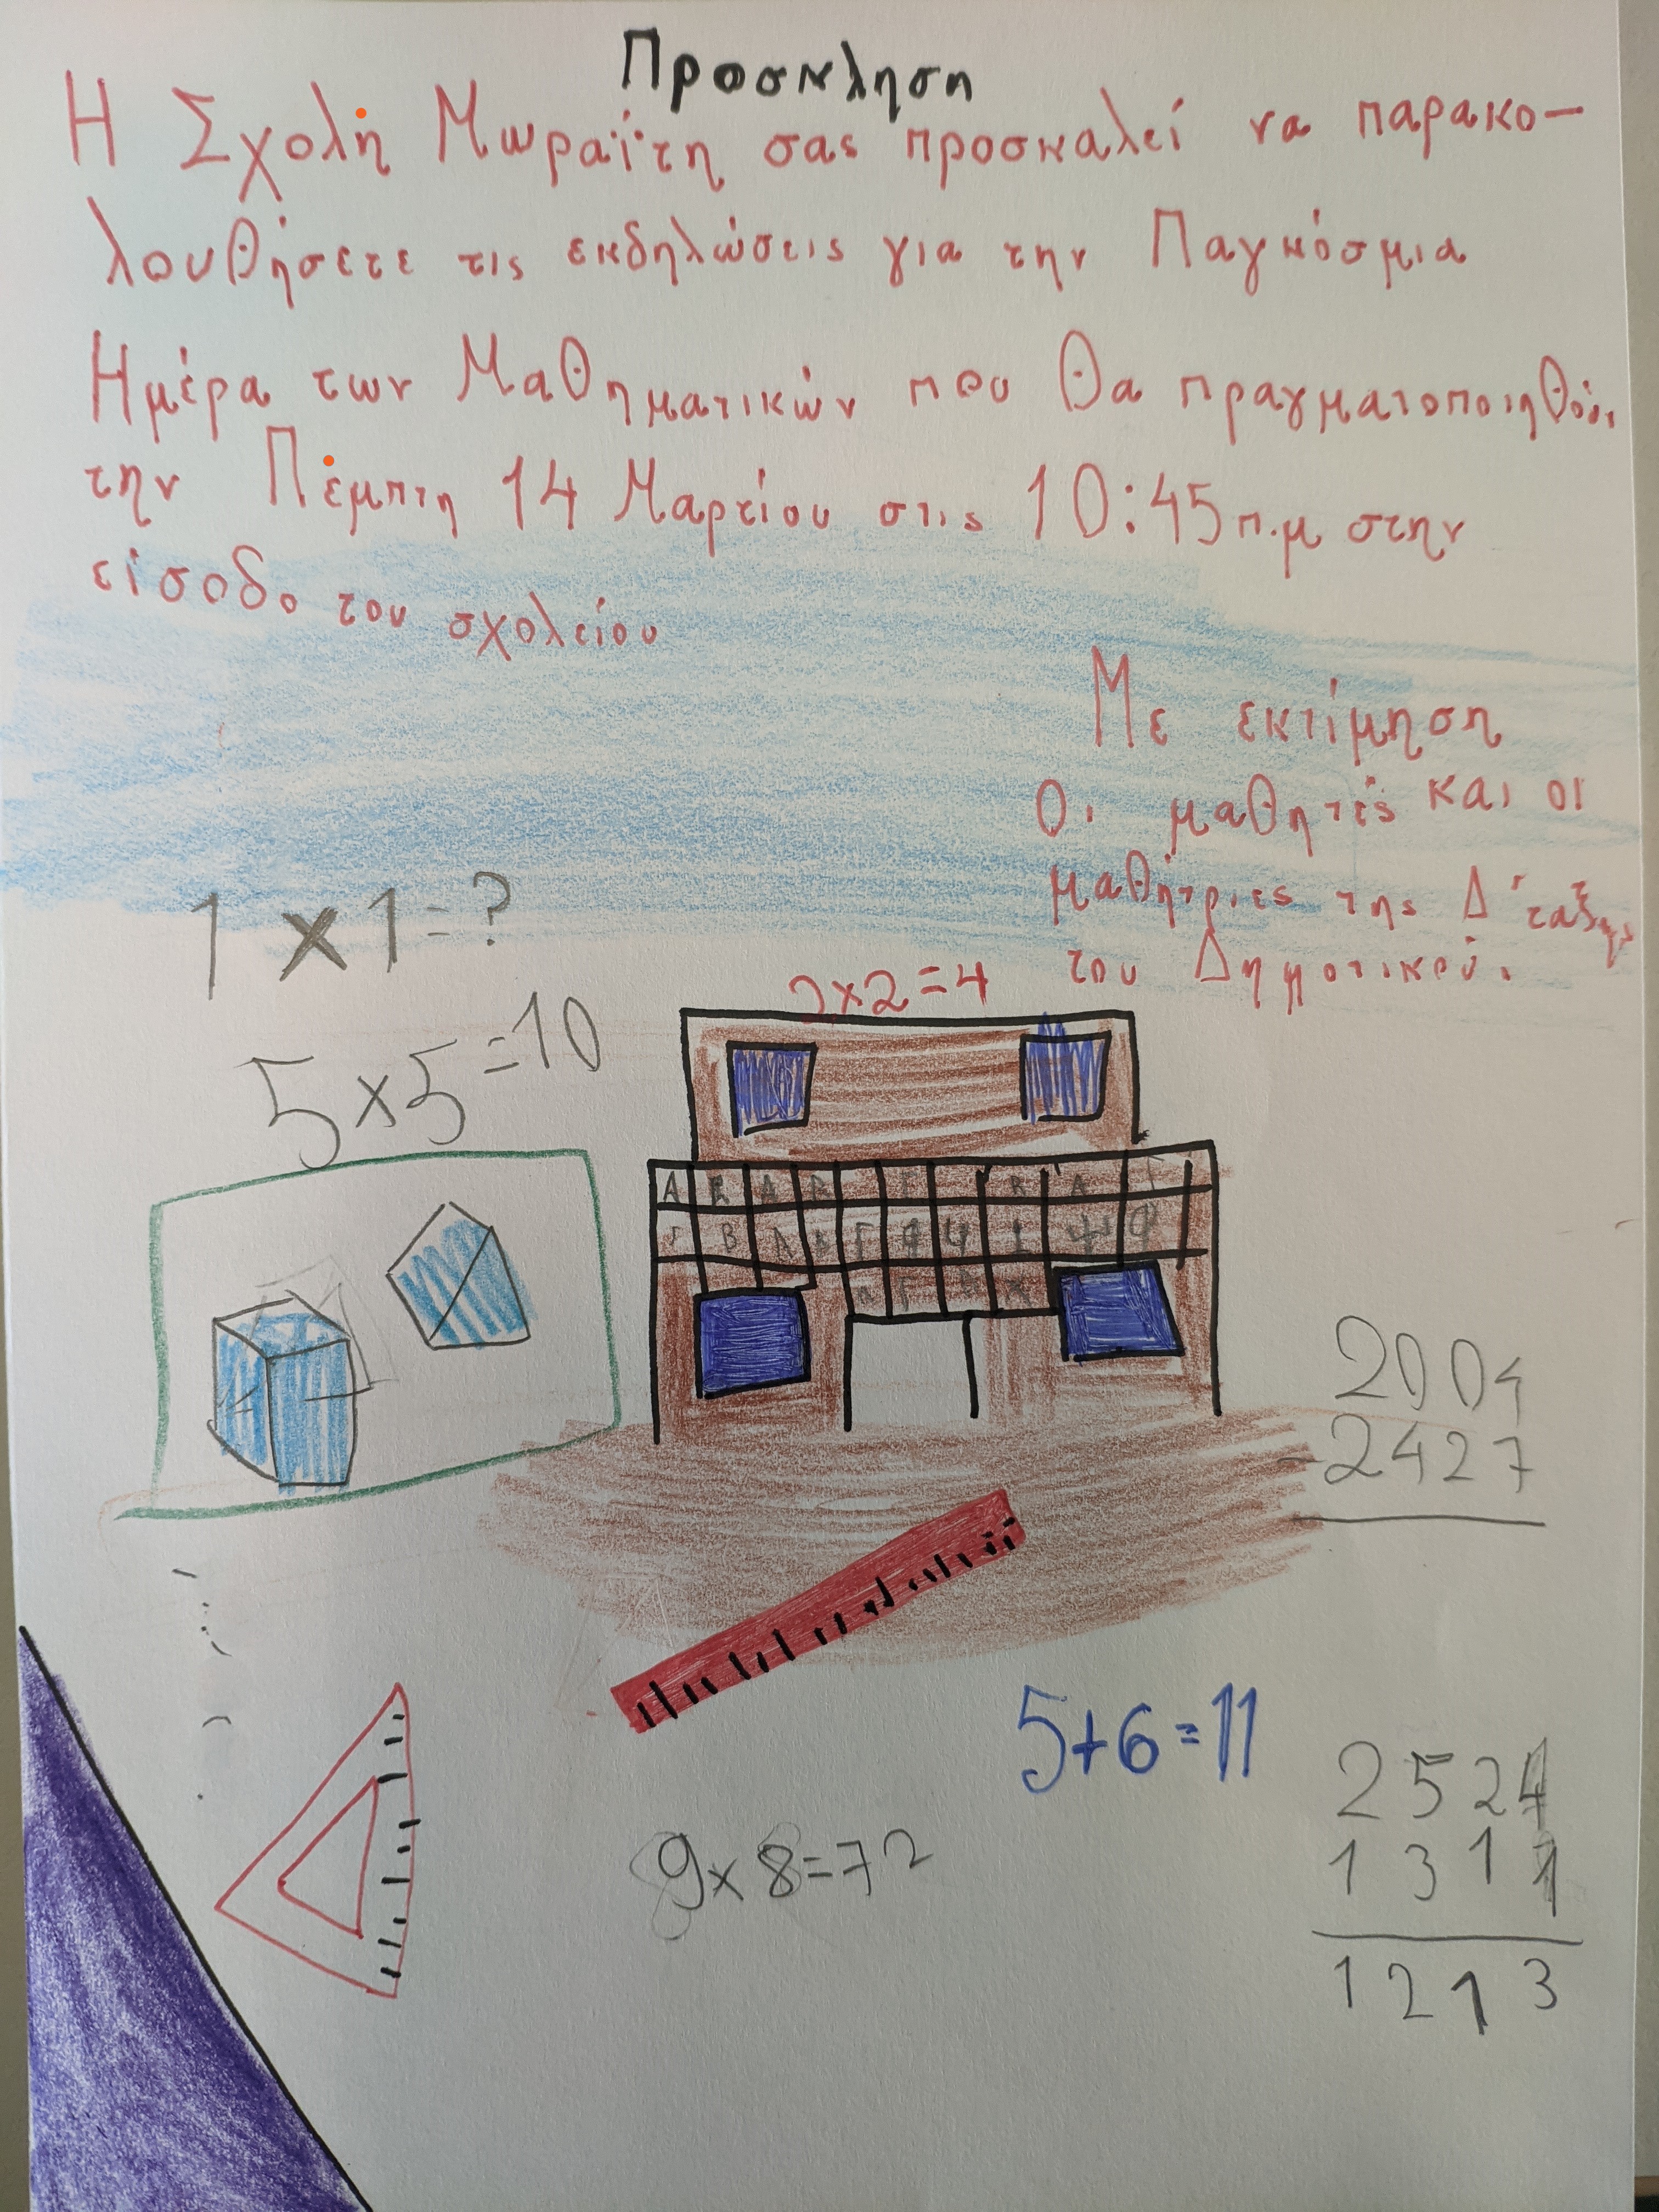 Προσκληση
Η Σχολή Μωραΐτη σας προσκαλεί να παρακο-
λουθήσετε τις εκδηλώσεις για την Παγκόσμια
Ημέρα των Μαθηματικών που θα πραγματοποιηθούν
την Πέμπτη 14 Μαρτίου στις 10:45 π.μ στην
είσοδο του σχολείου
Με εκτίμηση
Οι μαθητές και οι
μαθήτριες της Δ΄ταξης
του Δημοτικού.
1 x 1 = ?
2x2=4
5x5=10
2004
-2427
5+6=11
9x8=72
2524
1311
1213